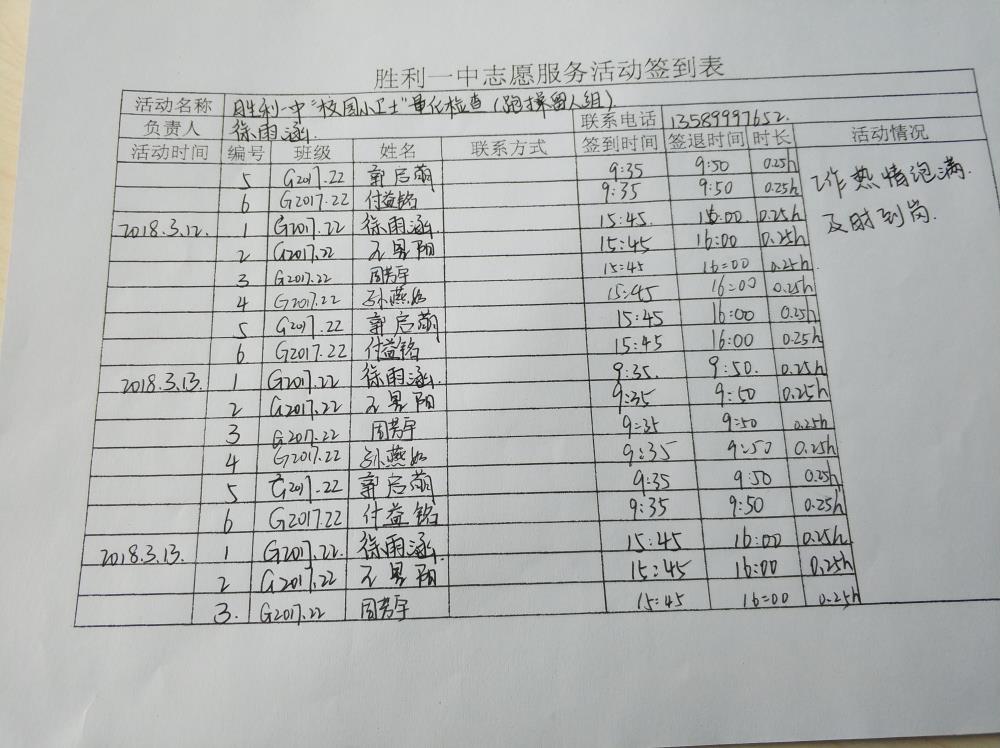 胜利一中志愿服务活动签到表
活动名称 胜利一中"校园小卫士"量化检查(跑操留人组).
负责人 徐雨涵. 联系电话 13589997652.
活动时间 编号 班级 姓名 联系方式 签到时间 签退时间 时长 活动情况
5 G2017.22 郭启萌 9:35 9:50 0.25h 工作热情饱满.
6 G2017.22 付益铭 9:35 9:50 0.25h 及时到岗.
2018.3.12. 1 G2017.22 徐雨涵. 15:45. 16:00. 0.25h
2 G2017.22 阳 15:45 16:00 0.25h
3 G2017.22 周芳宇 15:45 16:00 0.25h
4 G2017.22 孙燕如 15:45 16:00 0.25h
5 G2017.22 郭启萌 15:45 16:00 0.25h
6 G2017.22 付益铭 15:45 16:00 0.25h
2018.3.13. 1 G2017.22 徐雨涵. 9:35. 9:50. 0.25h
2 G2017.22 阳 9:35 9:50 0.25h
3 G2017.22 周芳宇 9:35 9:50 0.25h
4 G2017.22 孙燕如 9:35 9:50 0.25h
5 G2017.22 郭启萌 9:35 9:50 0.25h
6 G2017.22 付益铭 9:35 9:50 0.25h
2018.3.13. 1 G2017.22. 徐雨涵. 15:45 16:00 0.25h
2 G2017.22 阳 15:45 16:00 0.25h
3. G2017.22 周芳宇 15:45 16:00 0.25h